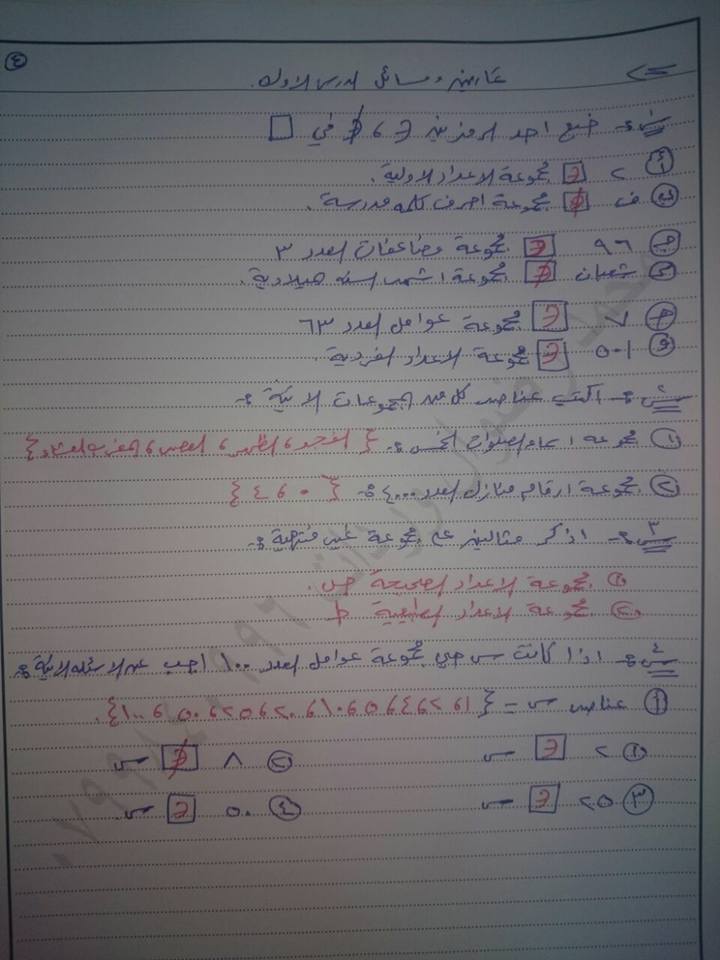 ٤
تمارين ومسائل الدرس الاول
س١:- ضع احد الرمزين ∈ ، ∉ في □
أ) ٢ ∈ مجموعة الاعداد الاولية.
ب) ف ∉ مجموعة احرف كلمة مدرسة.
ج) ٩٦ ∈ مجموعة مضاعفات العدد ٣
د) شعبان ∉ مجموعة اشهر السنه الميلادية.
هـ) ٧ ∈ مجموعة عوامل العدد ٦٣
و) ٥٠١ ∈ مجموعة الاعداد الفردية.
س٢:- اكتب عناصر كل من المجموعات الاتية:-
١) مجموعة اسماء الصلوات الخمس:- {الفجر، الظهر، العصر، المغرب، العشاء}
٢) مجموعة ارقام منازل العدد ٤٠٠٠:- {٠، ٤}
س٣:- اذكر مثالين على مجموعة غير منتهية:-
١) مجموعة الاعداد الصحيحة ص.
٢) مجموعة الاعداد الطبيعية ط
س٤:- اذا كانت س هي مجموعة عوامل العدد ١٠٠ اجب عن الاسئله الاتية:-
أ) عناصر س = {١، ٢، ٤، ٥، ١٠، ٢٠، ٢٥، ٥٠، ١٠٠}.
١) ٢ ∈ س ٢) ٨ ∉ س
٣) ٢٥ ∈ س ٤) ٥٠ ∈ س